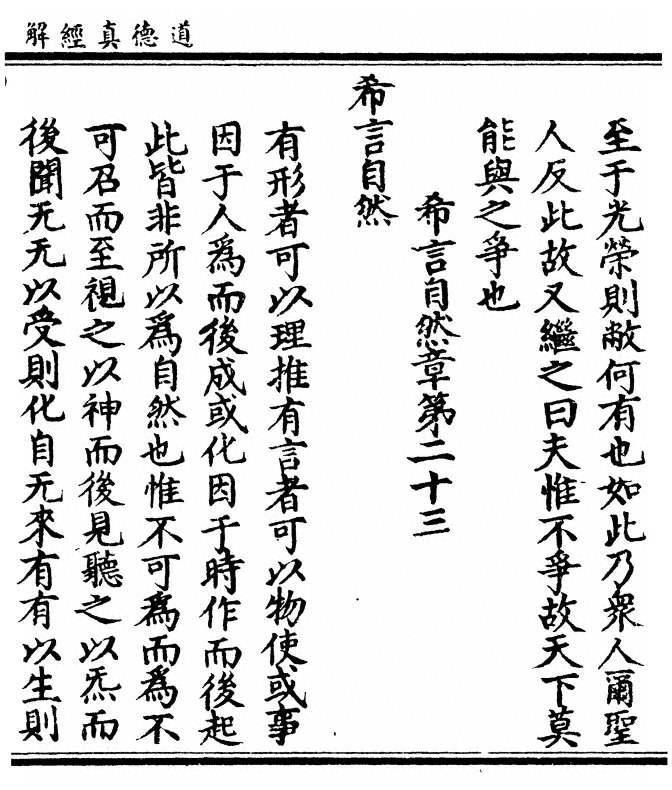 道德真經解
至于光榮則敝何有也如此乃衆人爾聖
人反此故又繼之曰夫惟不爭故天下莫
能與之爭也
希言自然章第二十三
希言自然
有形者可以理推有言者可以物使或事
因于人爲而後成或化因于時作而後起
此皆非所以爲自然也惟不可爲而爲不
可召而至視之以神而後見聽之以炁而
後聞无无以受則化自无來有有以生則